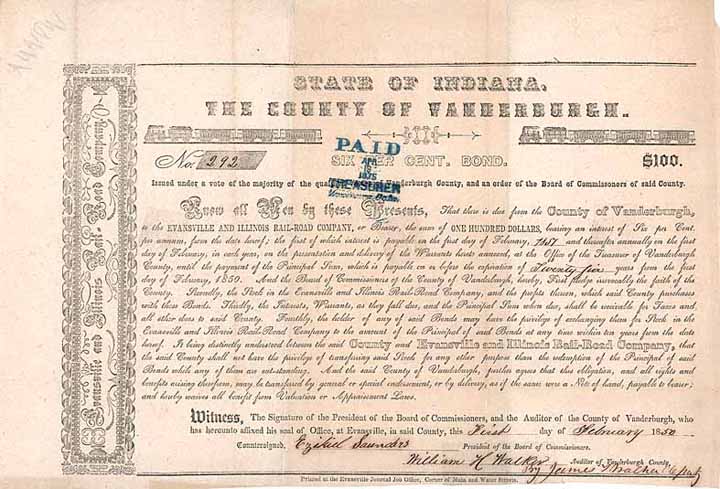 STATE OF INDIANA.
THE COUNTY OF VANDERBURGH.
PAID
APR
1875
TREASURER
No. 292
SIX PER CENT. BOND.
$100.
Issued under a vote of the majority of the Vanderburgh County, and an order of the Board of Commissoners of said County.
Know all Men by these Presents, That there is due from the County of Vanderburgh,
to the EVANSVILLE AND ILLINOIS RAIL-ROAD COMPANY, or Bearer, the sum of ONE HUNDRED DOLLARS, bearing an interest of Six per Cent.
per annum, from the date hereof; the first of which interest is payable in the first day of February, and thereafter annually on the first
day of February, in each year, on the presentation and delivery of the Warrants hereto annexed, at the Office of the Treasurer of Vanderburgh
County, until the payment of the Principal Sum, which is payable on or before the expiration of Twenty five years from the first
day of February, 1850. And the Board of Commissioners of the County of Vanderburgh, hereby, First pledge irrevocably the faith of the
County. Secondly, the Stock in the Evansville and Illinois Rail-Road Company, and the profits thereon, which said County purchases
with these Bonds. Thirdly, the Interests, Warrants, as they fall due, and the Principal Sum when due, shall be receivable for Taxes and
all other dues to said County. Fourthly, the holder of any of said Bonds may have the privilege of exchanging them for Stock in the
Evansville and Illinois Rail-Road Company to the amount of the Principal of said Bonds at any time within ten years from the date
hereof. It being distinctly understood between the said County and Evansville and Illinois Rail-Road Company, that
the said County shall not have the privilege of transferring said Stock for any other purpose than the redemption of the Principal of said
Bonds while any of them are outstanding. And the said County of Vanderburgh, further agrees that this Obligation, and all rights and
benefits arising therefrom, may be transferred by general or special endorsement, or by delivery, as if the same were a Note of hand, payable to bearer;
and hereby waives all benefit from Valuation or Appraisement Laws.
Witness, The Signature of the President of the Board of Commissioners, and the Auditor of the County of Vanderburgh, who
has hereunto affixed his seal of Office, at Evansville, in said County, this First day of February 1850
Countersigned, Ezikiel Saunders President of the Board of Commissioners.
William H Walker Auditor of Vanderburgh County,
by James Walker Deputy
Printed at the Evansville Journal Job Office, Corner of Main and Water Streets.
Evansville and Illinois Rail-Road Company.